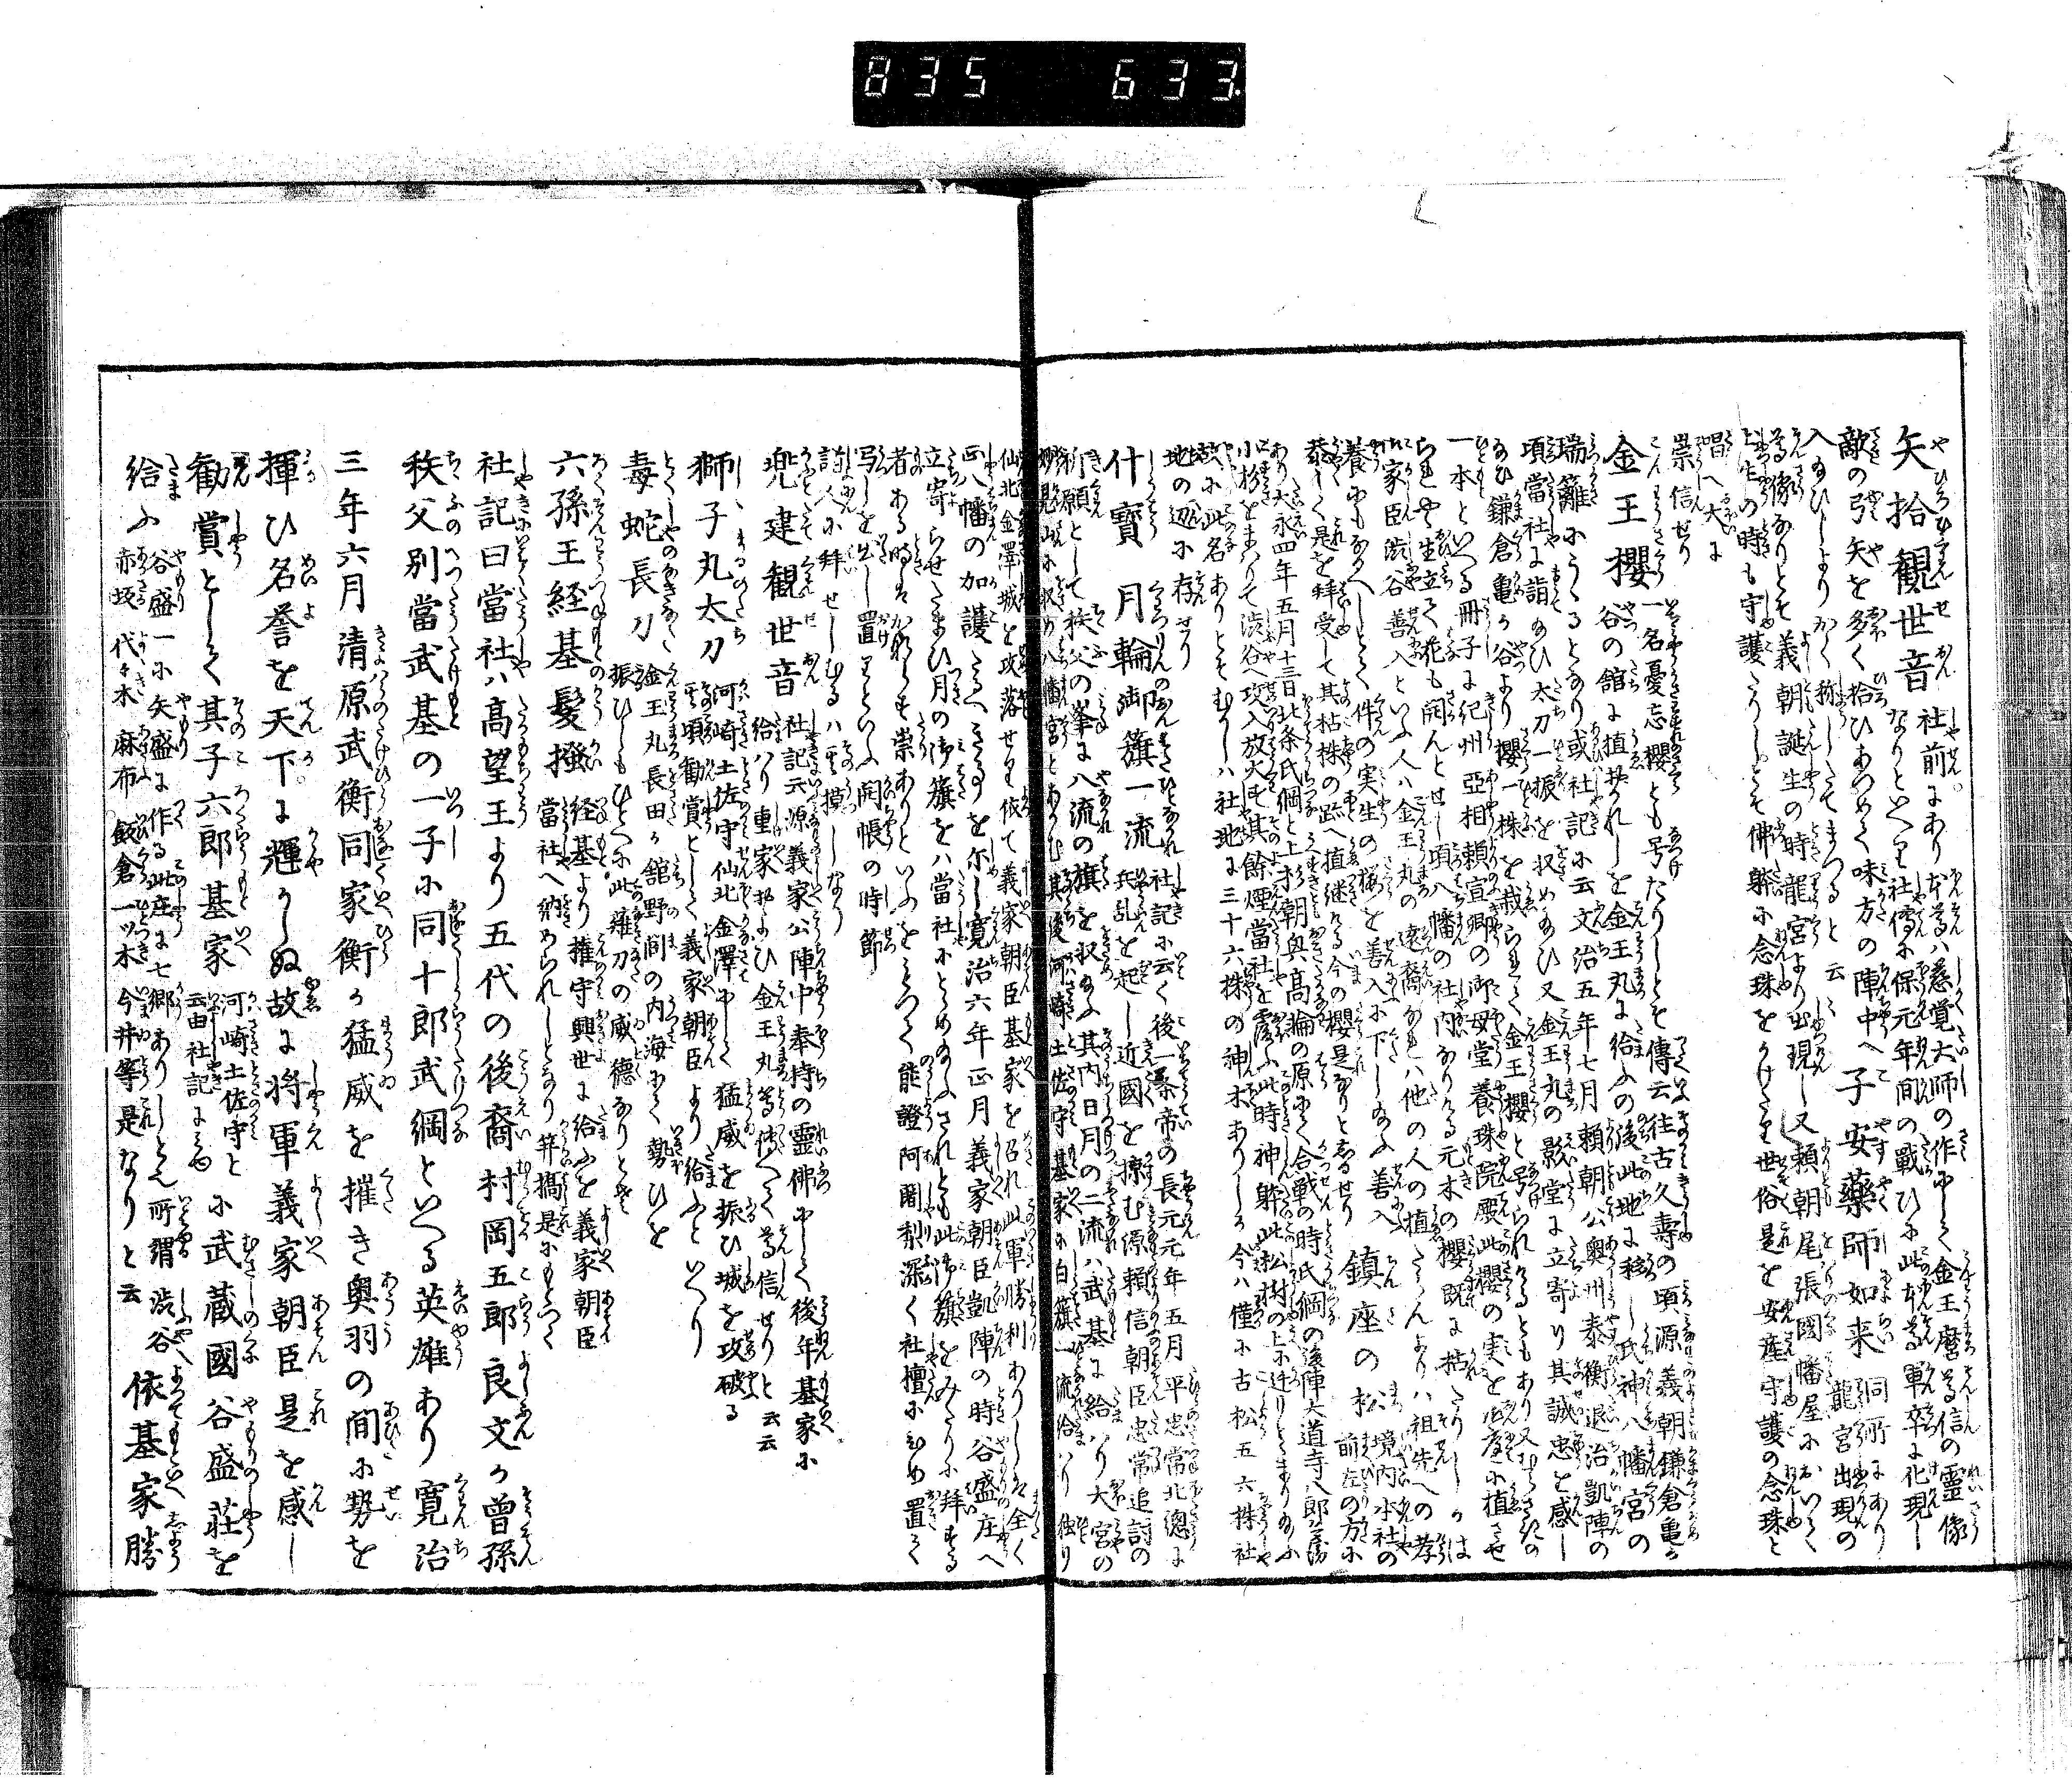 835 633.
矢拾觀世音 社前にあり本尊ハ慈覚大師の作にして金王麿尊信の靈像
なりといへり社傳に保元年間の戰ひに此本尊軍卒に化現し
敵の引矢を多く拾ひあつめて味方の陣中へ
入給ひしよりかく称してまつると云
子安藥師如来 同所にあり
龍宮出現の
尊像なりとそ義朝誕生の時龍宮より出現し又頼朝尾張國幡屋において
生の時も守護たりしとそ佛躰に念珠をかけたり世俗是を安産守護の念珠と
唱へ大に
崇信せり
金王櫻 一名憂忘櫻とも号たりしとそ傳云往古久壽の頃源義朝鎌倉亀か
谷の舘に植おかれしを金王丸に給ふの後此地に移し氏神八幡宮の
瑞籬にうゝるとあり或社記に云文治五年七月頼朝公奥州泰衡退治凱陣の
頃當社に詣給ひ太刀一振を収め給ひ又金王丸の影堂に立寄り其誠忠を感し
給ひ鎌倉亀か谷より櫻一株を栽らせて金王櫻と号られけるともあり又
一本といへる冊子に紀州亞相頼宣卿の御母堂養珠院殿此櫻の実を庭に植させ
られや生立て花も開んとせし頃八幡の社内なりける元木の櫻既に枯たりしかは
家臣渋谷善入といふ人ハ金王丸の遠裔なれハ他の人の植たらんよりハ祖先への孝
養にもなへしとて件の実生の櫻を善入に下し給ふ善入
恭しく是を拜受して其枯株の跡へ植継ける今の櫻是なりとしるせり
鎮座の松 境内本社の
前左の方に
あり大永四年五月十三日北条氏綱と上杉朝興高輪の原にて合戦の時氏綱の後陣大道寺八郎兵衛
小杉をまハりて渋谷へ攻入放火す其餘煙當社を覆ふ此時神躰此松樹の上に迁りとゝまり給ふ
故に此名ありとそむかしハ社地に三十六株の神木ありしか今ハ僅に古松五六株社
地の辺に存せり
什寳 月輪御籏一流 社記に云く後一条帝の長元元年五月平忠常北總に
兵乱を起し近國を掠む源頼信朝臣忠常追討の
祈願として秩父の峯に八流の旗を収給ふ其内日月の二流ハ武基に給ハり大宮の
妙見山に収め八幡宮とあかむ其後河崎土佐守基家に白籏一流給ハり独り
仙北金澤城を攻落せり依て義家朝臣基家を召れ此軍勝利ありしは全く
正八幡の加護たるへきよしを尓し寛治六年正月義家朝臣凱陣の時谷盛庄へ
立寄らせたまひ月の御籏をハ當社にとゝめ給ふされとも此御籏をみたりに拜する
者ある時はかならす崇ありといふをもつて能證阿闍梨深く社檀にひめ置て
写しを出し置りといふ開帳の時節
詣人に拜せしむるハ其摸しなり
兜建觀世音 社記云源義家公陣中奉持の靈佛にして後年基家に
給ハり重家およひ金王丸尊信せりと云云
獅子丸太刀 河崎土佐守仙北金澤にして猛威を振ひ城を攻破る
其頃勧賞として義家朝臣より給ふといへり
毒蛇長刀 金王丸長田か舘野間の内海にて勢ひを
振ひしもひとへに此薙刀の威德なりとそ
六孫王経基髮撥 経基より権守興世に給ふを義家朝臣
當社へ納められしとなり笄撟是にもとつく
社記曰當社ハ高望王より五代の後裔村岡五郎良文の曾孫
秩父別當武基の一子に同十郎武綱といへる英雄あり寛治
三年六月清原武衡同家衡か猛威を摧き奥羽の間に勢を
揮ひ名誉を天下に輝かしぬ故に将軍義家朝臣是を感し
勧賞として其子六郎基家 河崎土佐守と
云由社記にみゆ に武蔵國谷盛莊を
給ふ 谷盛一に矢盛に作る此庄に七郷ありしとん所謂渋谷
赤坂代々木麻布飯倉一ツ木今井等是なりと云 依基家勝